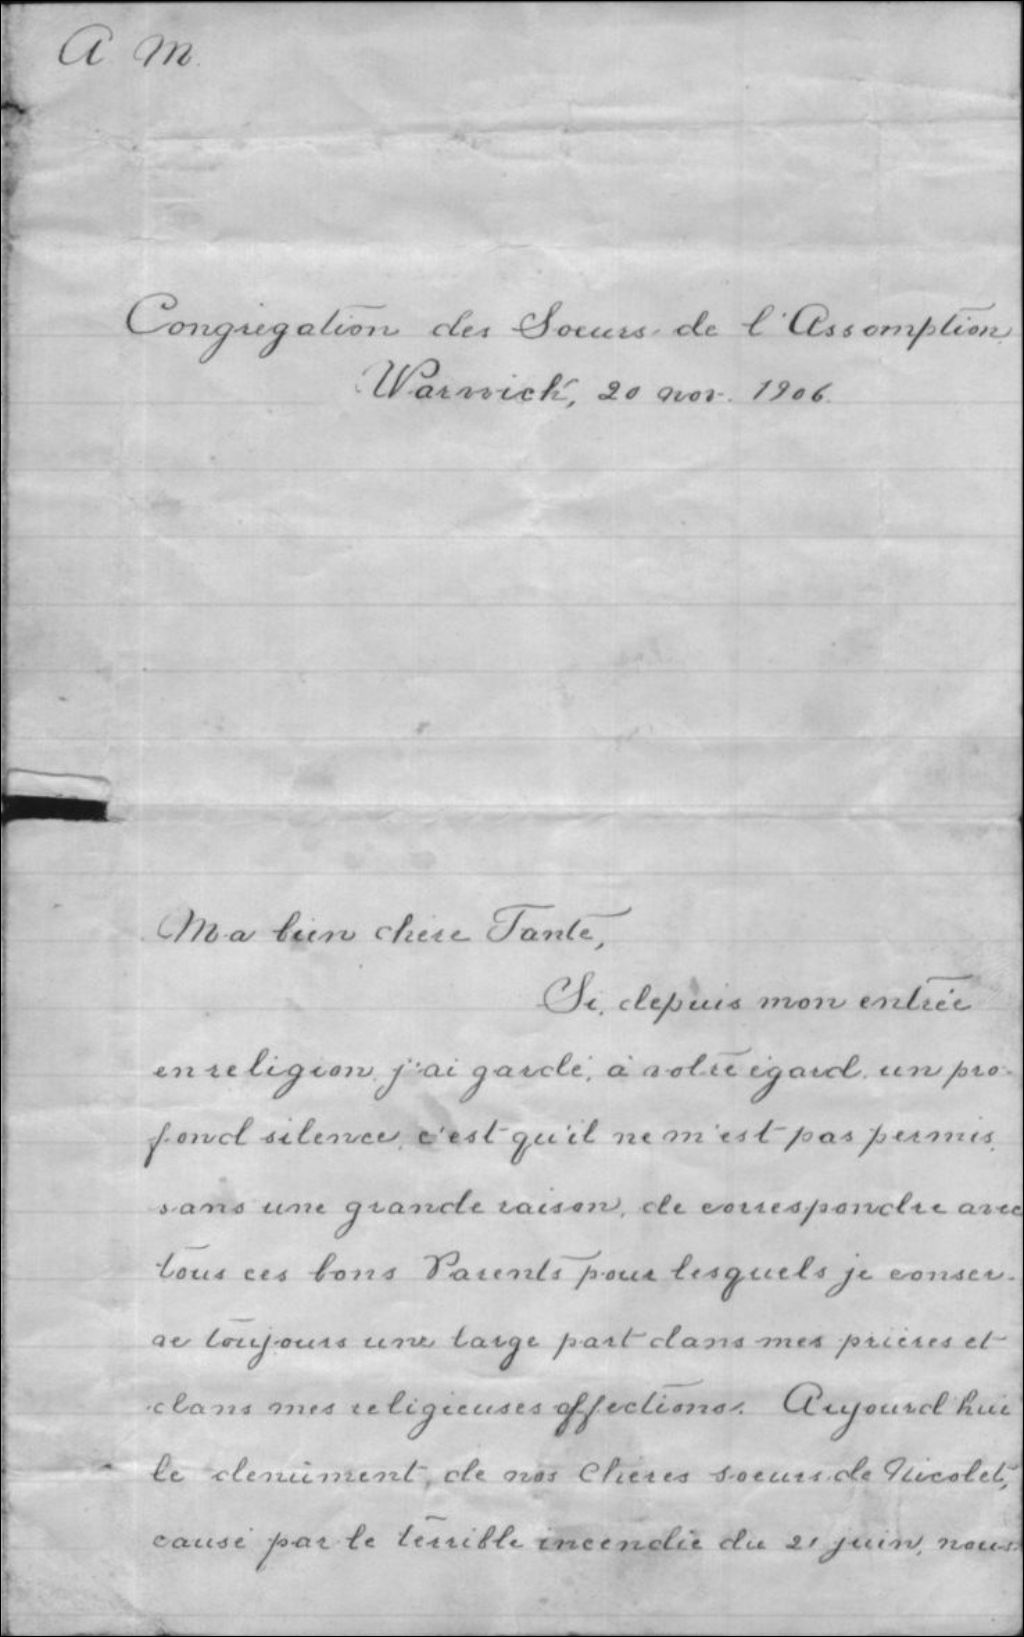 A M.
Congrégation des Soeurs de l'Assomption,
Warwick, 20 nov. 1906.
Ma bien chère Tante,
Si, depuis mon entrée
en religion, j'ai gardé, à votre égard, un pro-
fond silence, c'est qu'il ne m'est pas permis,
sans une grande raison, de correspondre avec
tous ces bons Parents pour lesquels je conser-
ve toujours une large part dans mes prières et
dans mes religieuses affections. Aujourd'hui
le denûment, de nos chères soeurs de Nicolet,
causé par le terrible incendie du 21 juin, nous